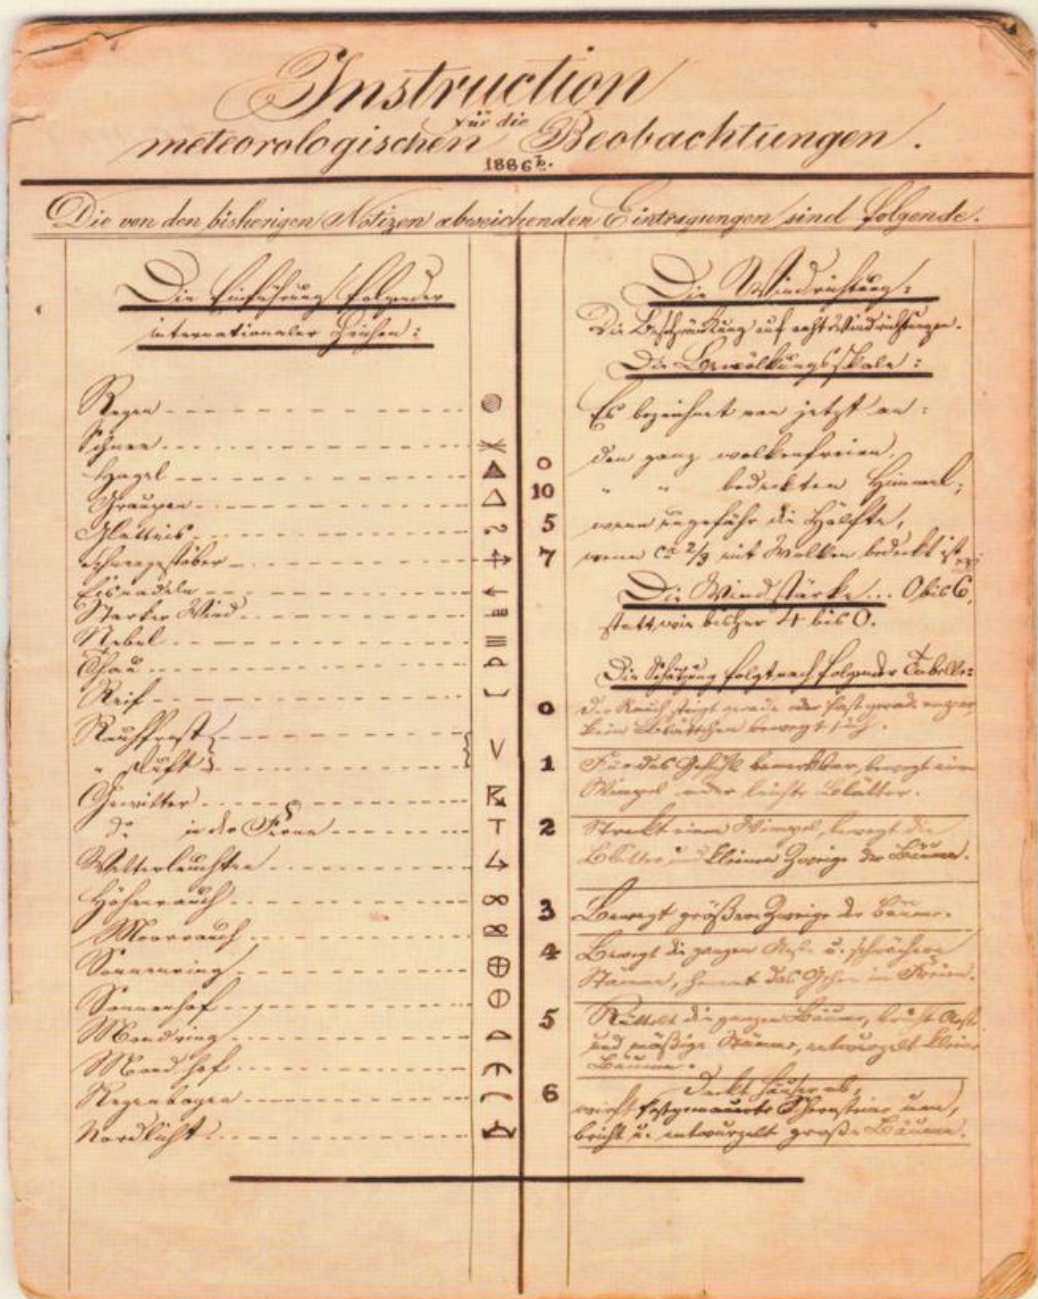 Instruction
für die
meteorologischen Beobachtungen.
1886
Die von den bisherigen Notizen abweichenden Eintragungen sind folgende.
Die Einführung folgender
internationaler Zeichen:
Regen
Schnee
Hagel
Graupen
Glatteis
Schneegestöber
Eisnadeln
Starker Wind
Nebel
Thau
Reif
Rauhfrost
" Duft
Gewitter
do in der Ferne
Wetterleuchten
Höhenrauch
Moorrauch
Sonnenring
Sonnenhof
Mondring
Mondhof
Regenbogen
Nordlicht
Die Windrichtung:
Die Beschränkung auf acht Windrichtungen.
Die Bewölkungsskala:
Es bezeichnet von jetzt an:
0 den ganz wolkenfreien,
10 " " bedeckten Himmel;
5 wenn ungefähr die Hälfte,
7 wenn ca 2/3 mit Wolken bedeckt ist
Die Windstärke... 0 bis 6,
statt wie bisher 4 bis 0.
Die Schätzung folgt nach folgender Tabelle:
0 Der Rauch steigt gerade oder fast gerade empor,
kein Blättchen bewegt sich.
1 Für das Gefühl bemerkbar, bewegt einen
Wimpel oder leichte Blätter.
2 Streckt einen Wimpel, bewegt die
Blätter und kleinen Zweige der Bäume.
3 Bewegt größere Zweige der Bäume.
4 Bewegt die ganzen Äste u. schwächere
Stämme, hemmt das Gehen im Freien.
5 Rüttelt die ganzen Bäume, bricht Äste
und mäßige Stämme, entwurzelt kleine
Bäume.
6 Deckt Häuser ab,
wirft festgemauerte Schornsteine um,
bricht u. entwurzelt große Bäume.